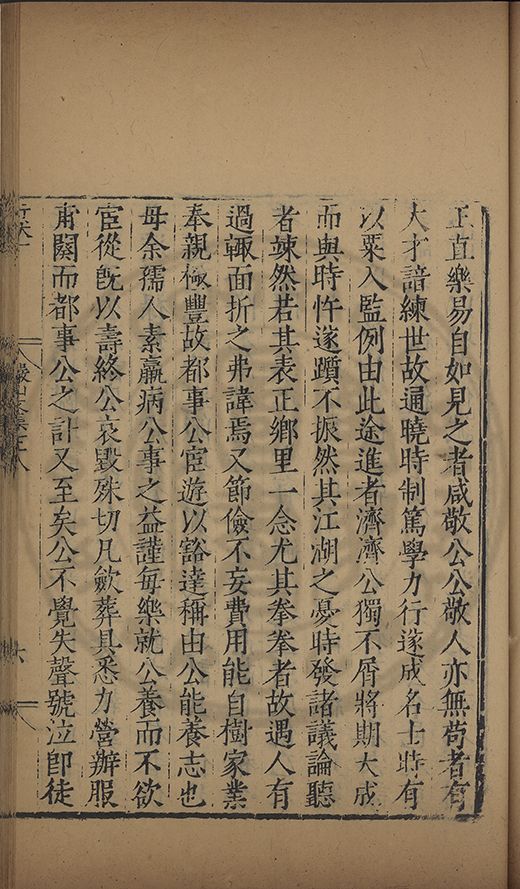 正直樂易自如見之者咸敬公公敬人亦無苟者有
大才諳練世故通曉時制篤學力行遂成名士時有
以粟入監例由此途進者濟濟公獨不屑將期大成
而與時忤遂躓不振然其江湖之憂時發諸議論聽
者竦然若其表正鄉里一念尤其拳拳者故遇人有
過輙面折之弗諱焉又節儉不妄費用能自樹家業
奉親極豐故都事公宦遊以豁達稱由公能養志也
母余孺人素羸病公事之益謹每樂就公養而不欲
宦從既以壽終公哀毀殊切凡歛葬具悉力營辦服
甫闋而都事公之訃又至矣公不覺失聲號泣卽徒